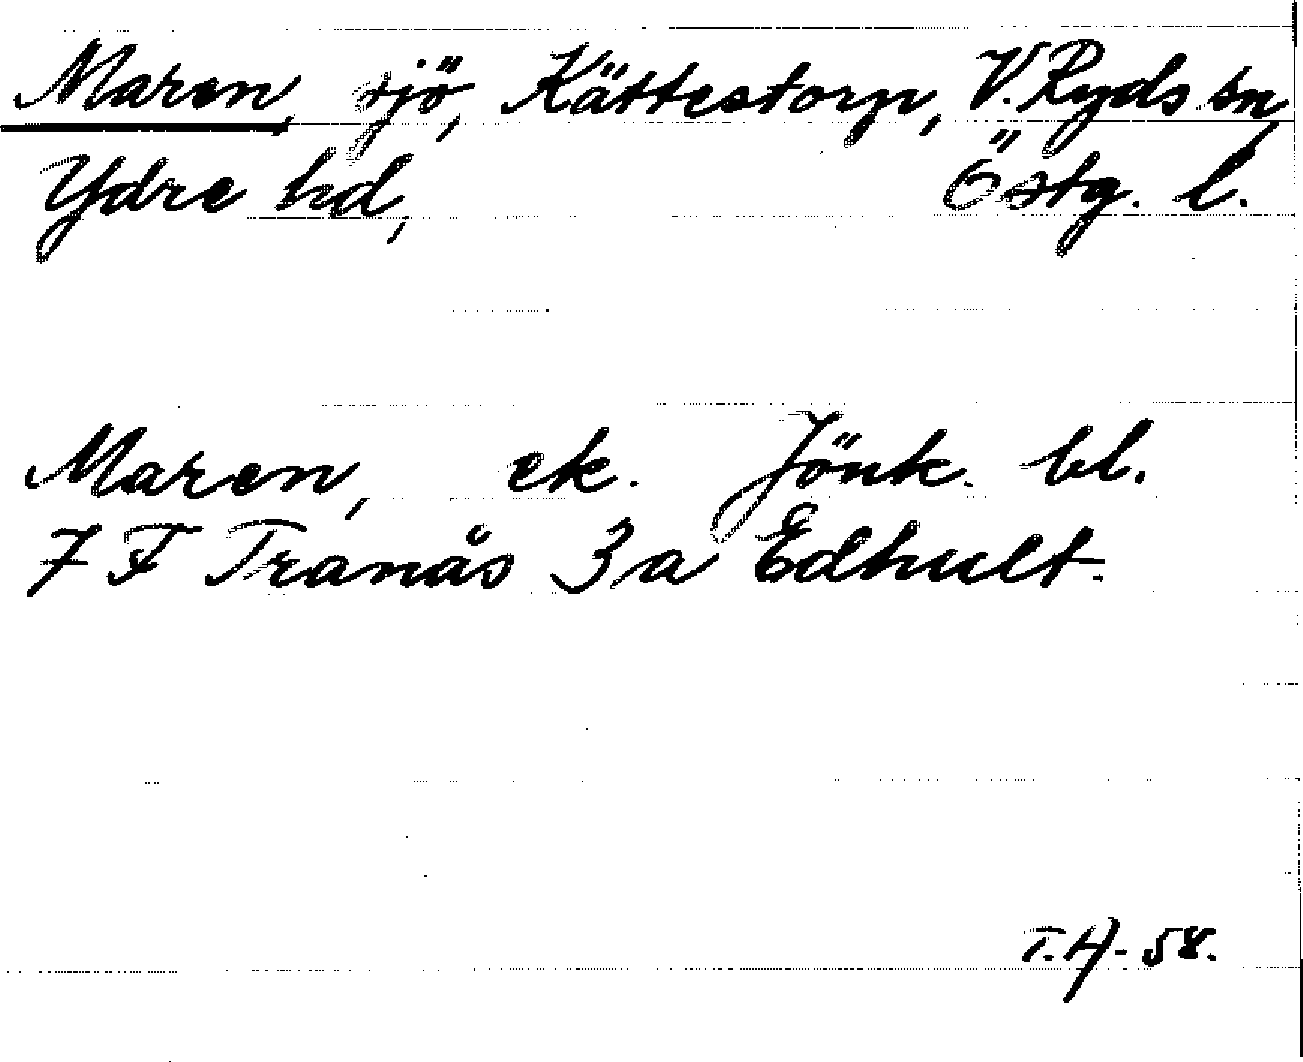 Maren, sjö, Kättestorp, V. Ryds sn,
Ydre hd, Östg. l.
Maren, ek. Jönk. bl.
7 F Tranås 3 a Edhult.
T.H-58.